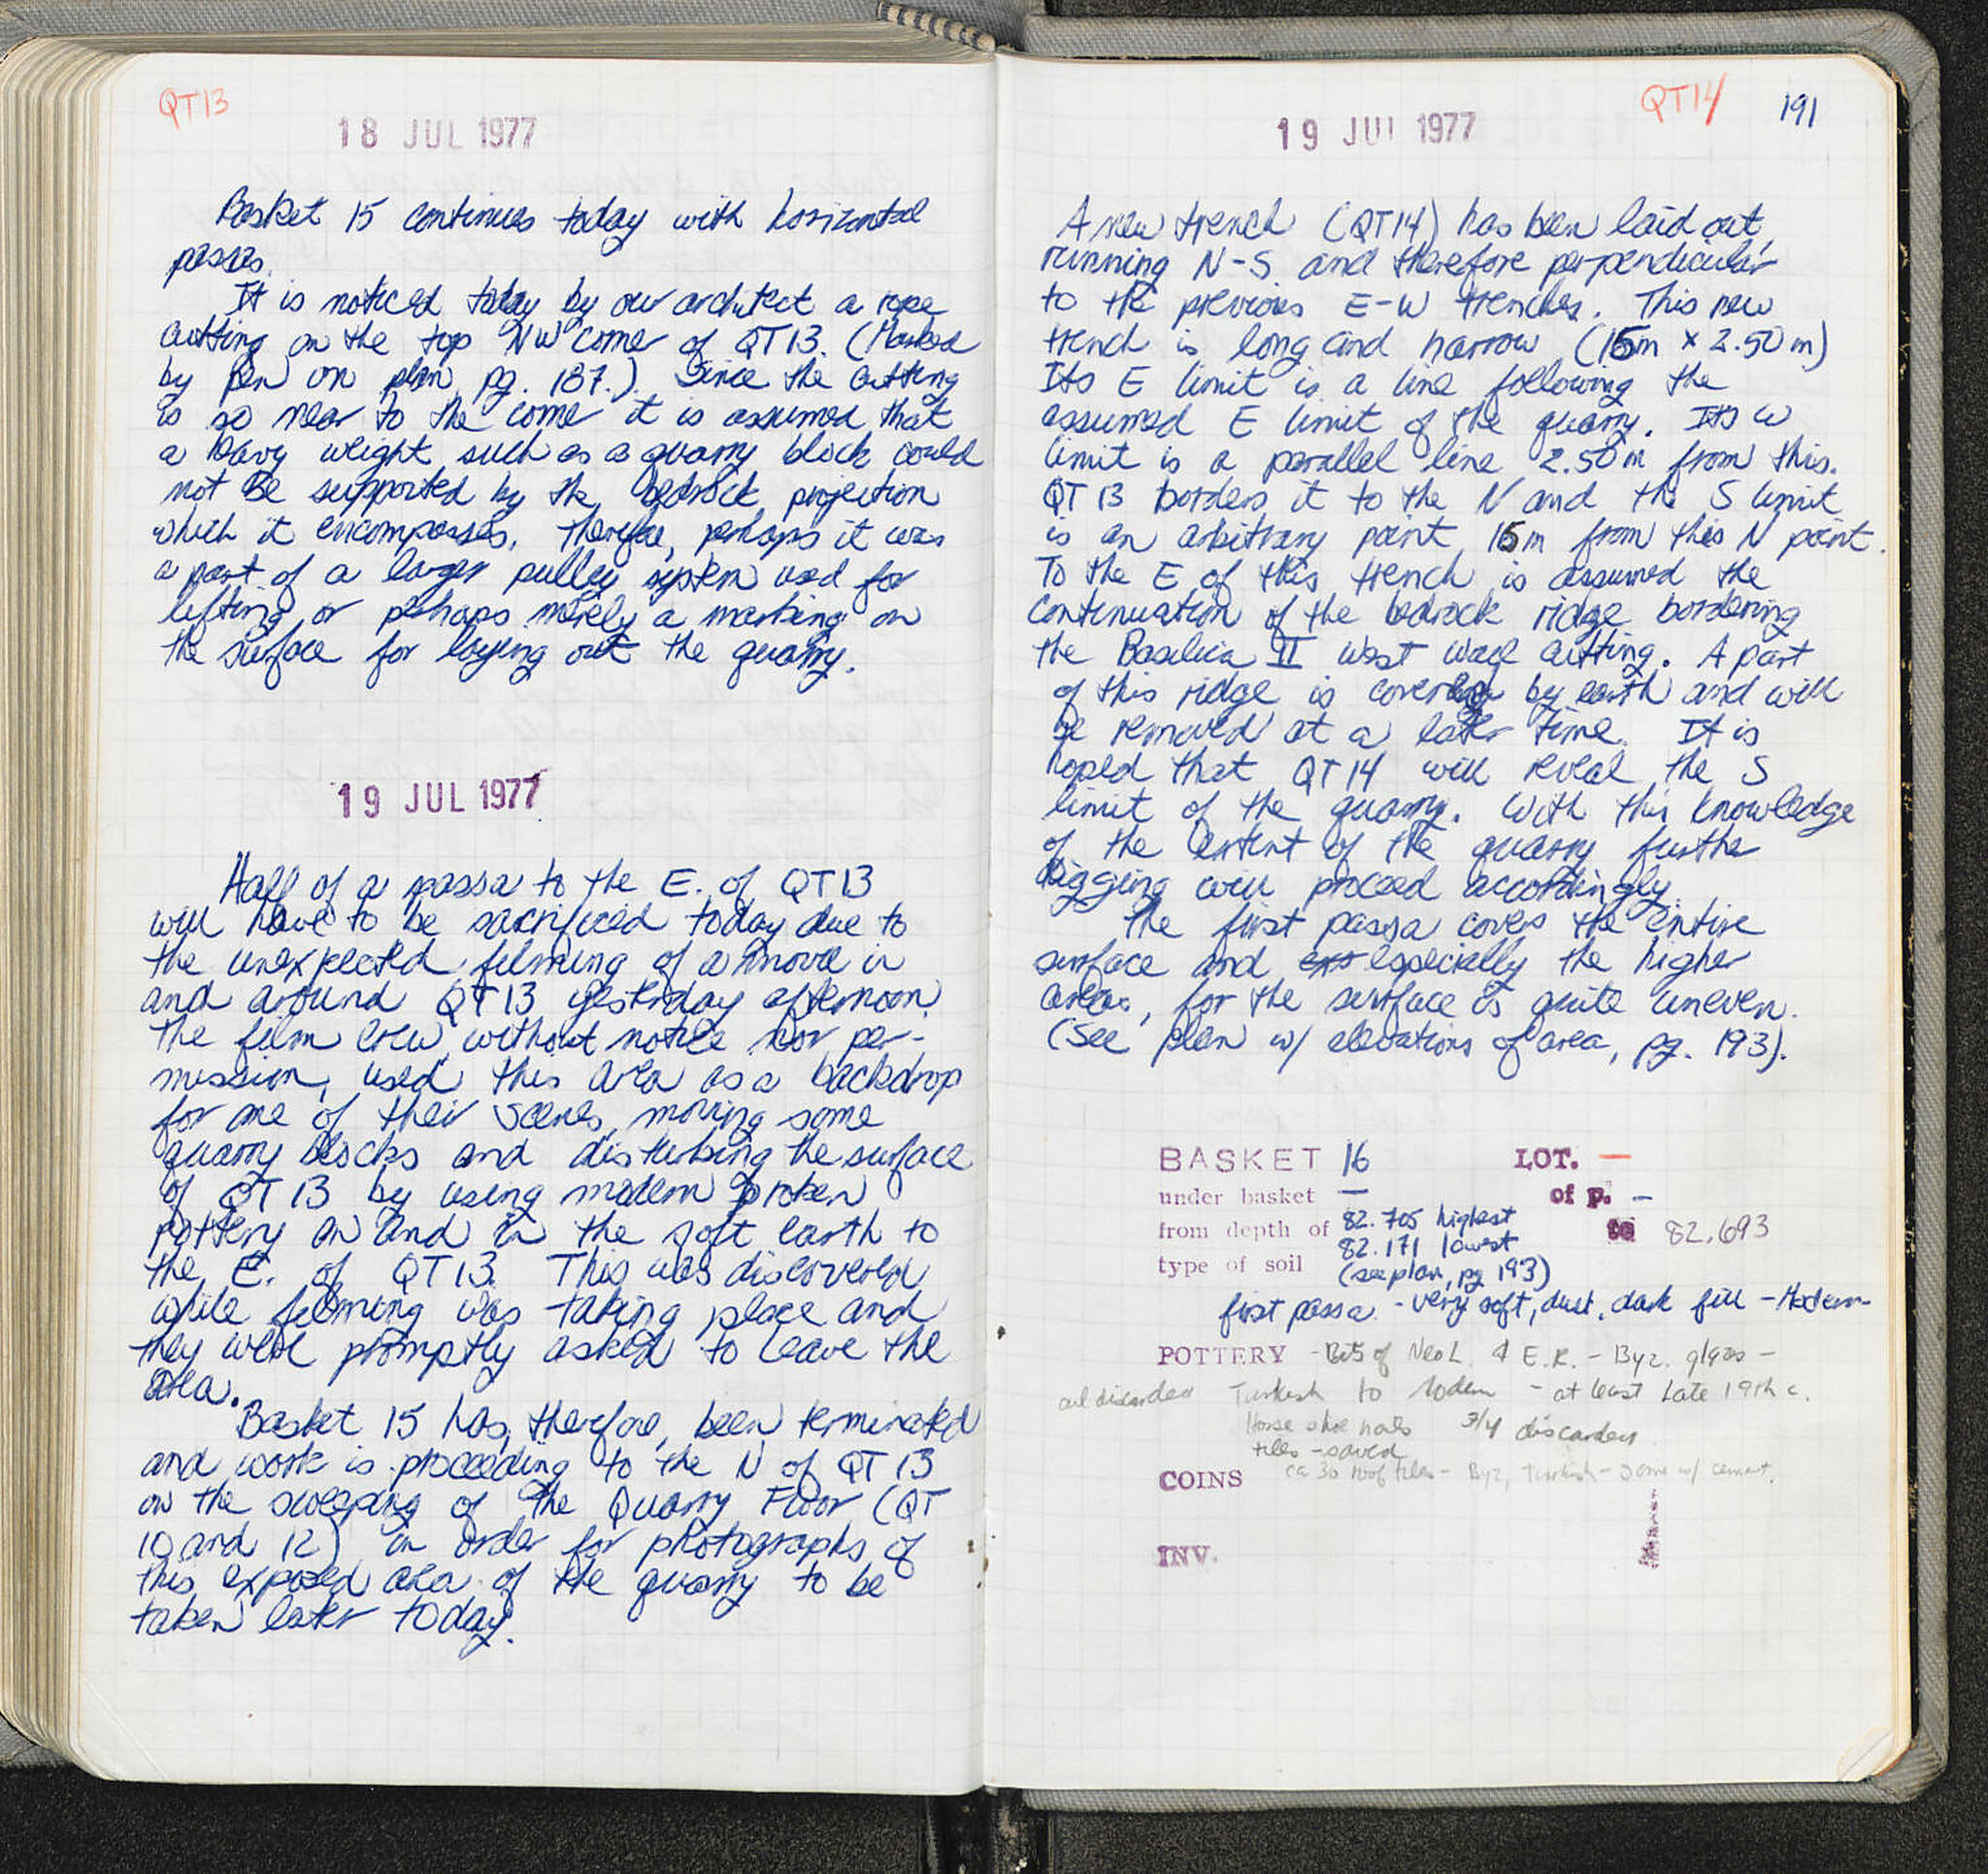 QT13
18 JUL 1977
Basket 15 continues today with horizontal
passas.
It is noticed today by our architect a rope
cutting on the top NW corner of QT13. (Marked
by pen on plan, pg. 187.). Since the cutting
is so near to the corner it is assumed that
a heavy weight such as a quarry block could
not be supported by the bedrock projection
which it encompasses. Therefore, perhaps it was
a part of a larger pulley system used for
lifting or perhaps merely a marking on
the surface for laying out the quarry.
19 JUL 1977
Half of a passa to the E. of QT13
will have to be sacrificed today due to
the unexpected filming of a movie in
and around QT13 yesterday afternoon.
The film crew, without notice nor per-
mission, used this area as a backdrop
for one of their scenes, moving some
quarry blocks and disturbing the surface
of QT13 by using modern broken
pottery on and in the soft earth to
the E. of QT13. This was discovered
while filming was taking place and
they were promptly asked to leave the
area.
Basket 15 has, therefore, been terminated
and work is proceeding to the N of QT13
on the sweeping of the Quarry Floor (QT
10 and 12) in order for photographs of
this exposed area of the quarry to be
taken later today.
QT14 191
19 JUL 1977
A new trench (QT14) has been laid out,
running N-S and therefore perpendicular
to the previous E-W trenches. This new
trench is long and narrow (15m x 2.50m)
Its E limit is a line following the
assumed E limit of the quarry. Its W
limit is a parallel line 2.50m from this.
QT13 borders it to the N and the S limit
is an arbitrary point, 15m from this N point.
To the E of this trench is assumed the
continuation of the bedrock ridge bordering
the Basilica II west wall cutting. A part
of this ridge is covered by earth and will
be removed at a later time. It is
hoped that QT14 will reveal the S
limit of the quarry. With this knowledge
of the extent of the quarry further
digging will proceed accordingly.
The first passa covers the entire
surface and especially the higher
areas, for the surface is quite uneven.
(See plan w/ elevations of area, pg. 193).
BASKET 16 LOT. —
under basket — of p. –
from depth of 82.705 highest to 82.693
82.171 lowest
type of soil (see plan, pg 193)
first passa - very soft, dust, dark fill - Modern
POTTERY - Bits of Neol. & E.R. - Byz. glass -
all discarded Turkish to Modern - at least Late 19th c.
Horse shoe nails 3/4 discarded
tiles - saved
COINS ca 30 roof tiles - Byz, Turkish - some w/ cement.
INV.